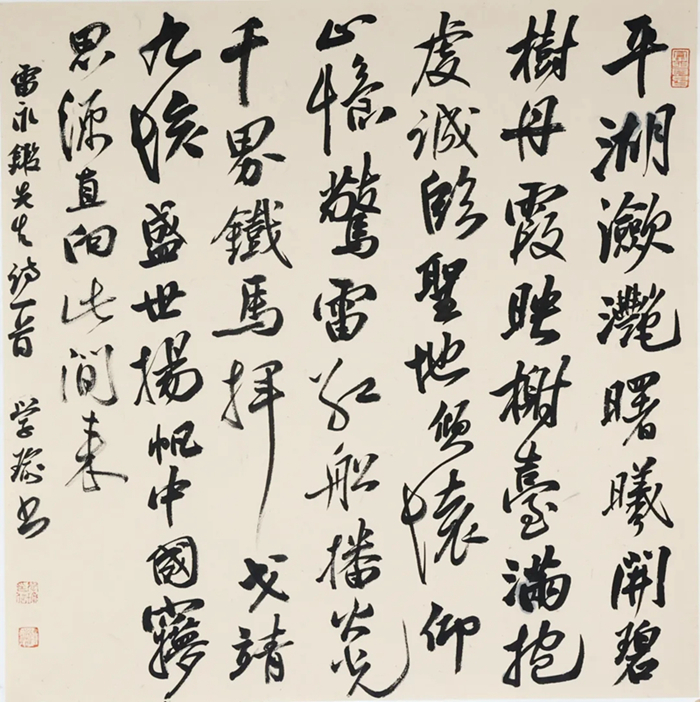 平湖瀲灩曙曦開碧
樹丹霞映榭臺滿抱
虔誠臨聖地傾懷仰
止憶驚雷紅船播火光
千界鐵馬揮戈靖
九垓盛世揚帆中國夢
思源直向此間來
雷永先生詩一首 学瑜书